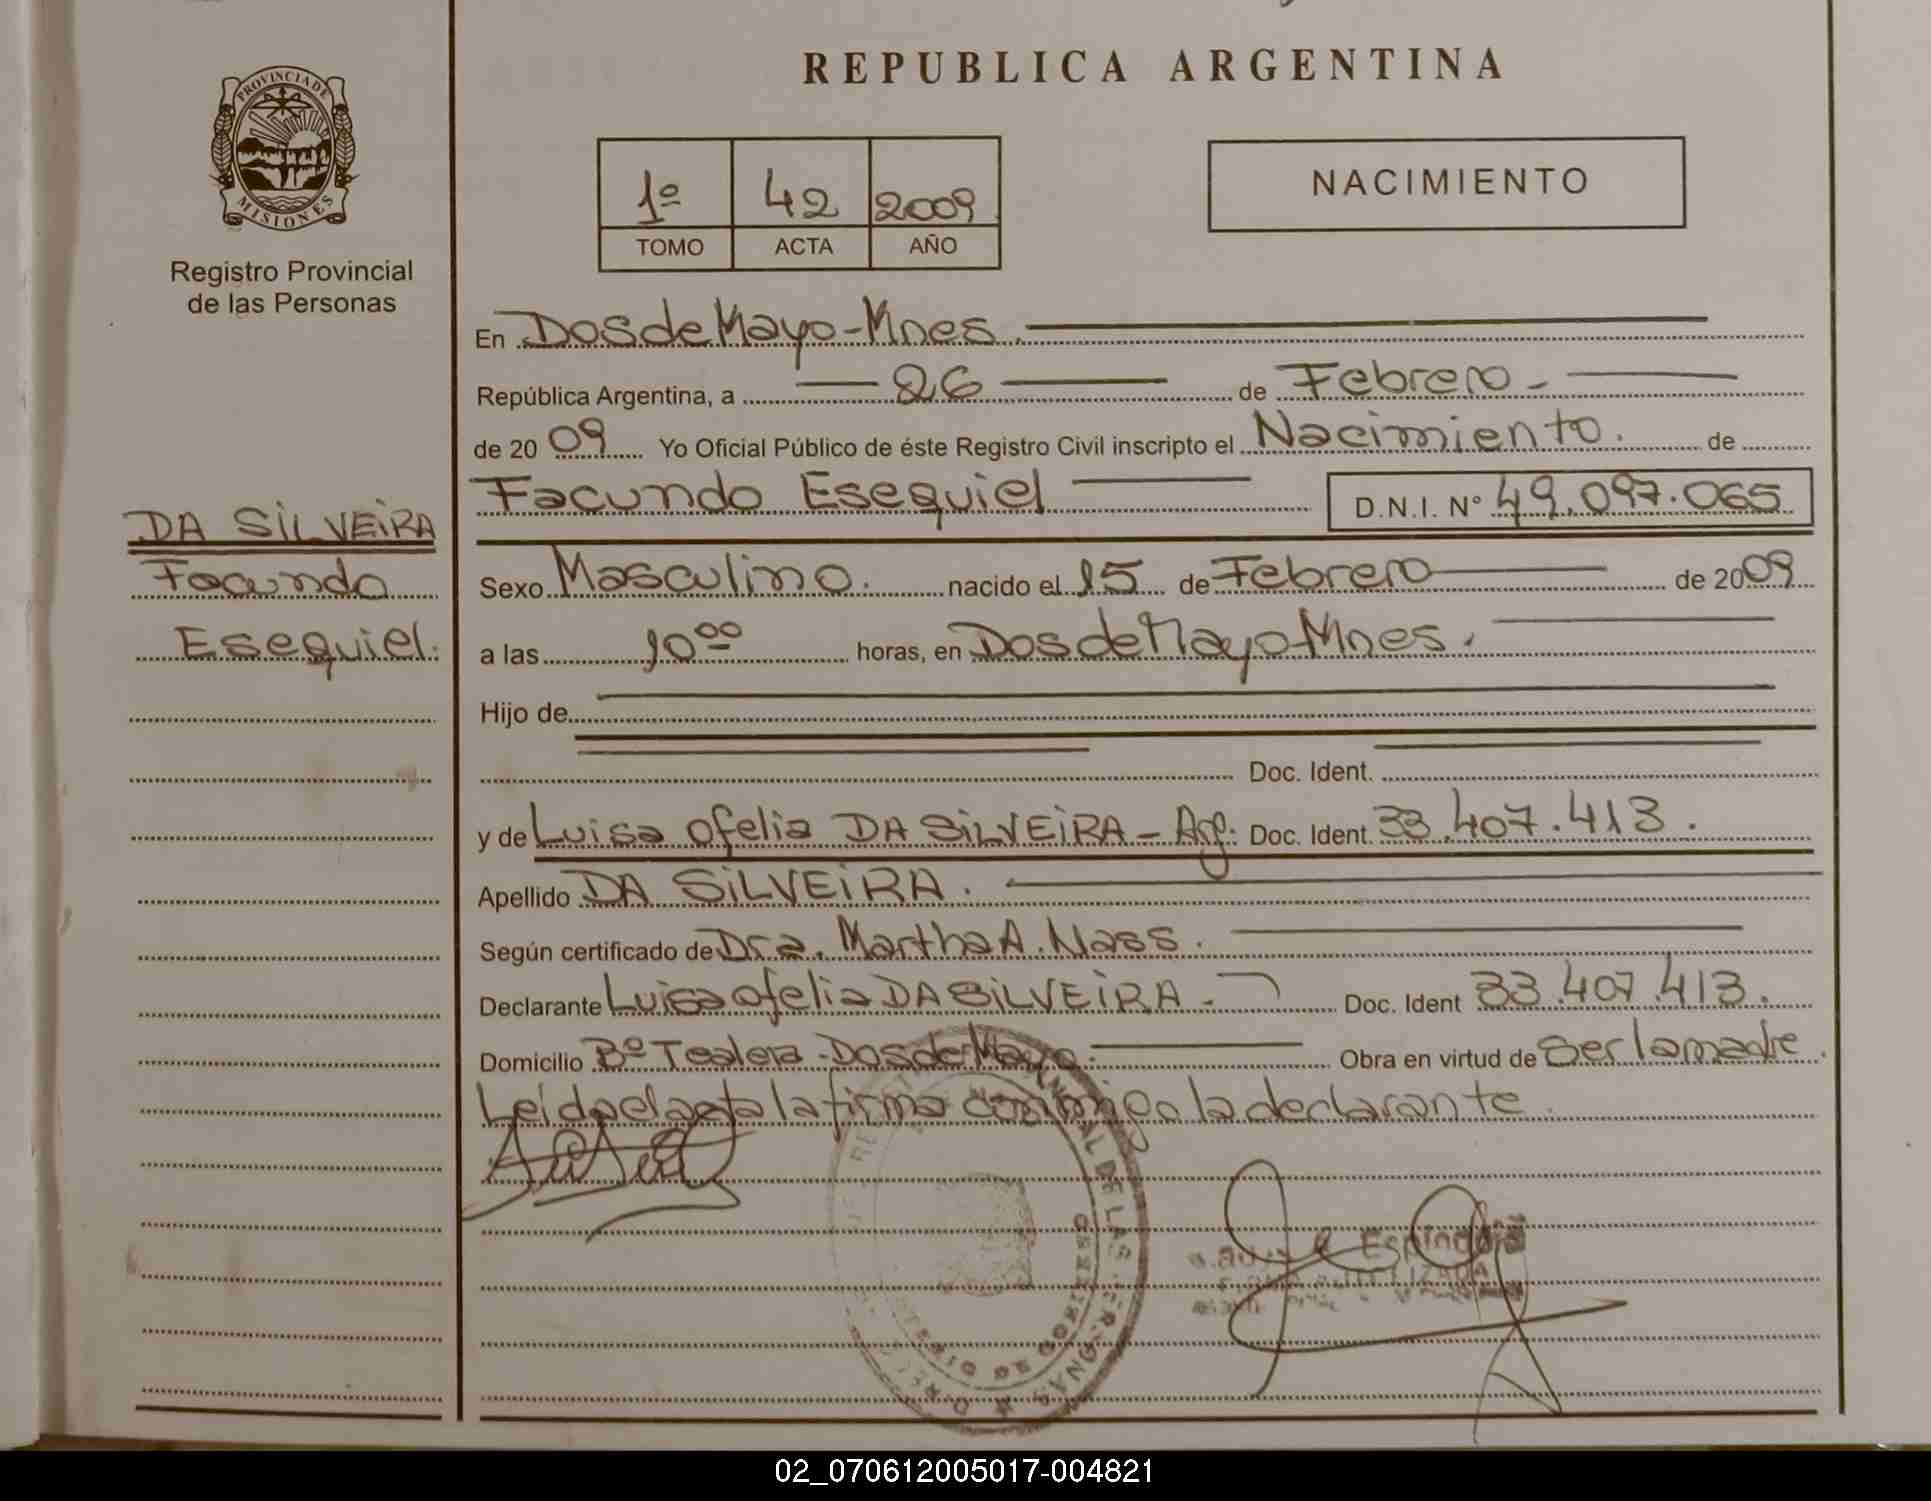 REPUBLICA ARGENTINA
PROVINCIA DE
MISIONES
Registro Provincial
de las Personas
1º 42 2009
TOMO ACTA AÑO
NACIMIENTO
En Dos de Mayo - Mnes.
República Argentina, a 26 de Febrero -
de 2009 Yo Oficial Público de éste Registro Civil inscripto el Nacimiento. de
Facundo Esequiel D.N.I. Nº 49.097.065
DA SiLVEiRA
Facundo
Esequiel.
Sexo Masculino. nacido el 15 de Febrero de 2009
a las 10 00 horas, en Dos de Mayo Mnes.
Hijo de
Doc. Ident.
y de Luisa Ofelia DA SiLVEiRA - Arg. Doc. Ident. 33.407.413.
Apellido DA SiLVEiRA.
Según certificado de Dra. Martha A. Nass.
Declarante Luisa Ofelia DA SiLVEiRA - Doc. Ident 33.407.413.
Domicilio Bº Tealera - Dos de Mayo. Obra en virtud de Ser la madre.
Leída el acta la firma conmigo la declarante.
DE LAS PERSONAS
Espíndola
02_070612005017-004821